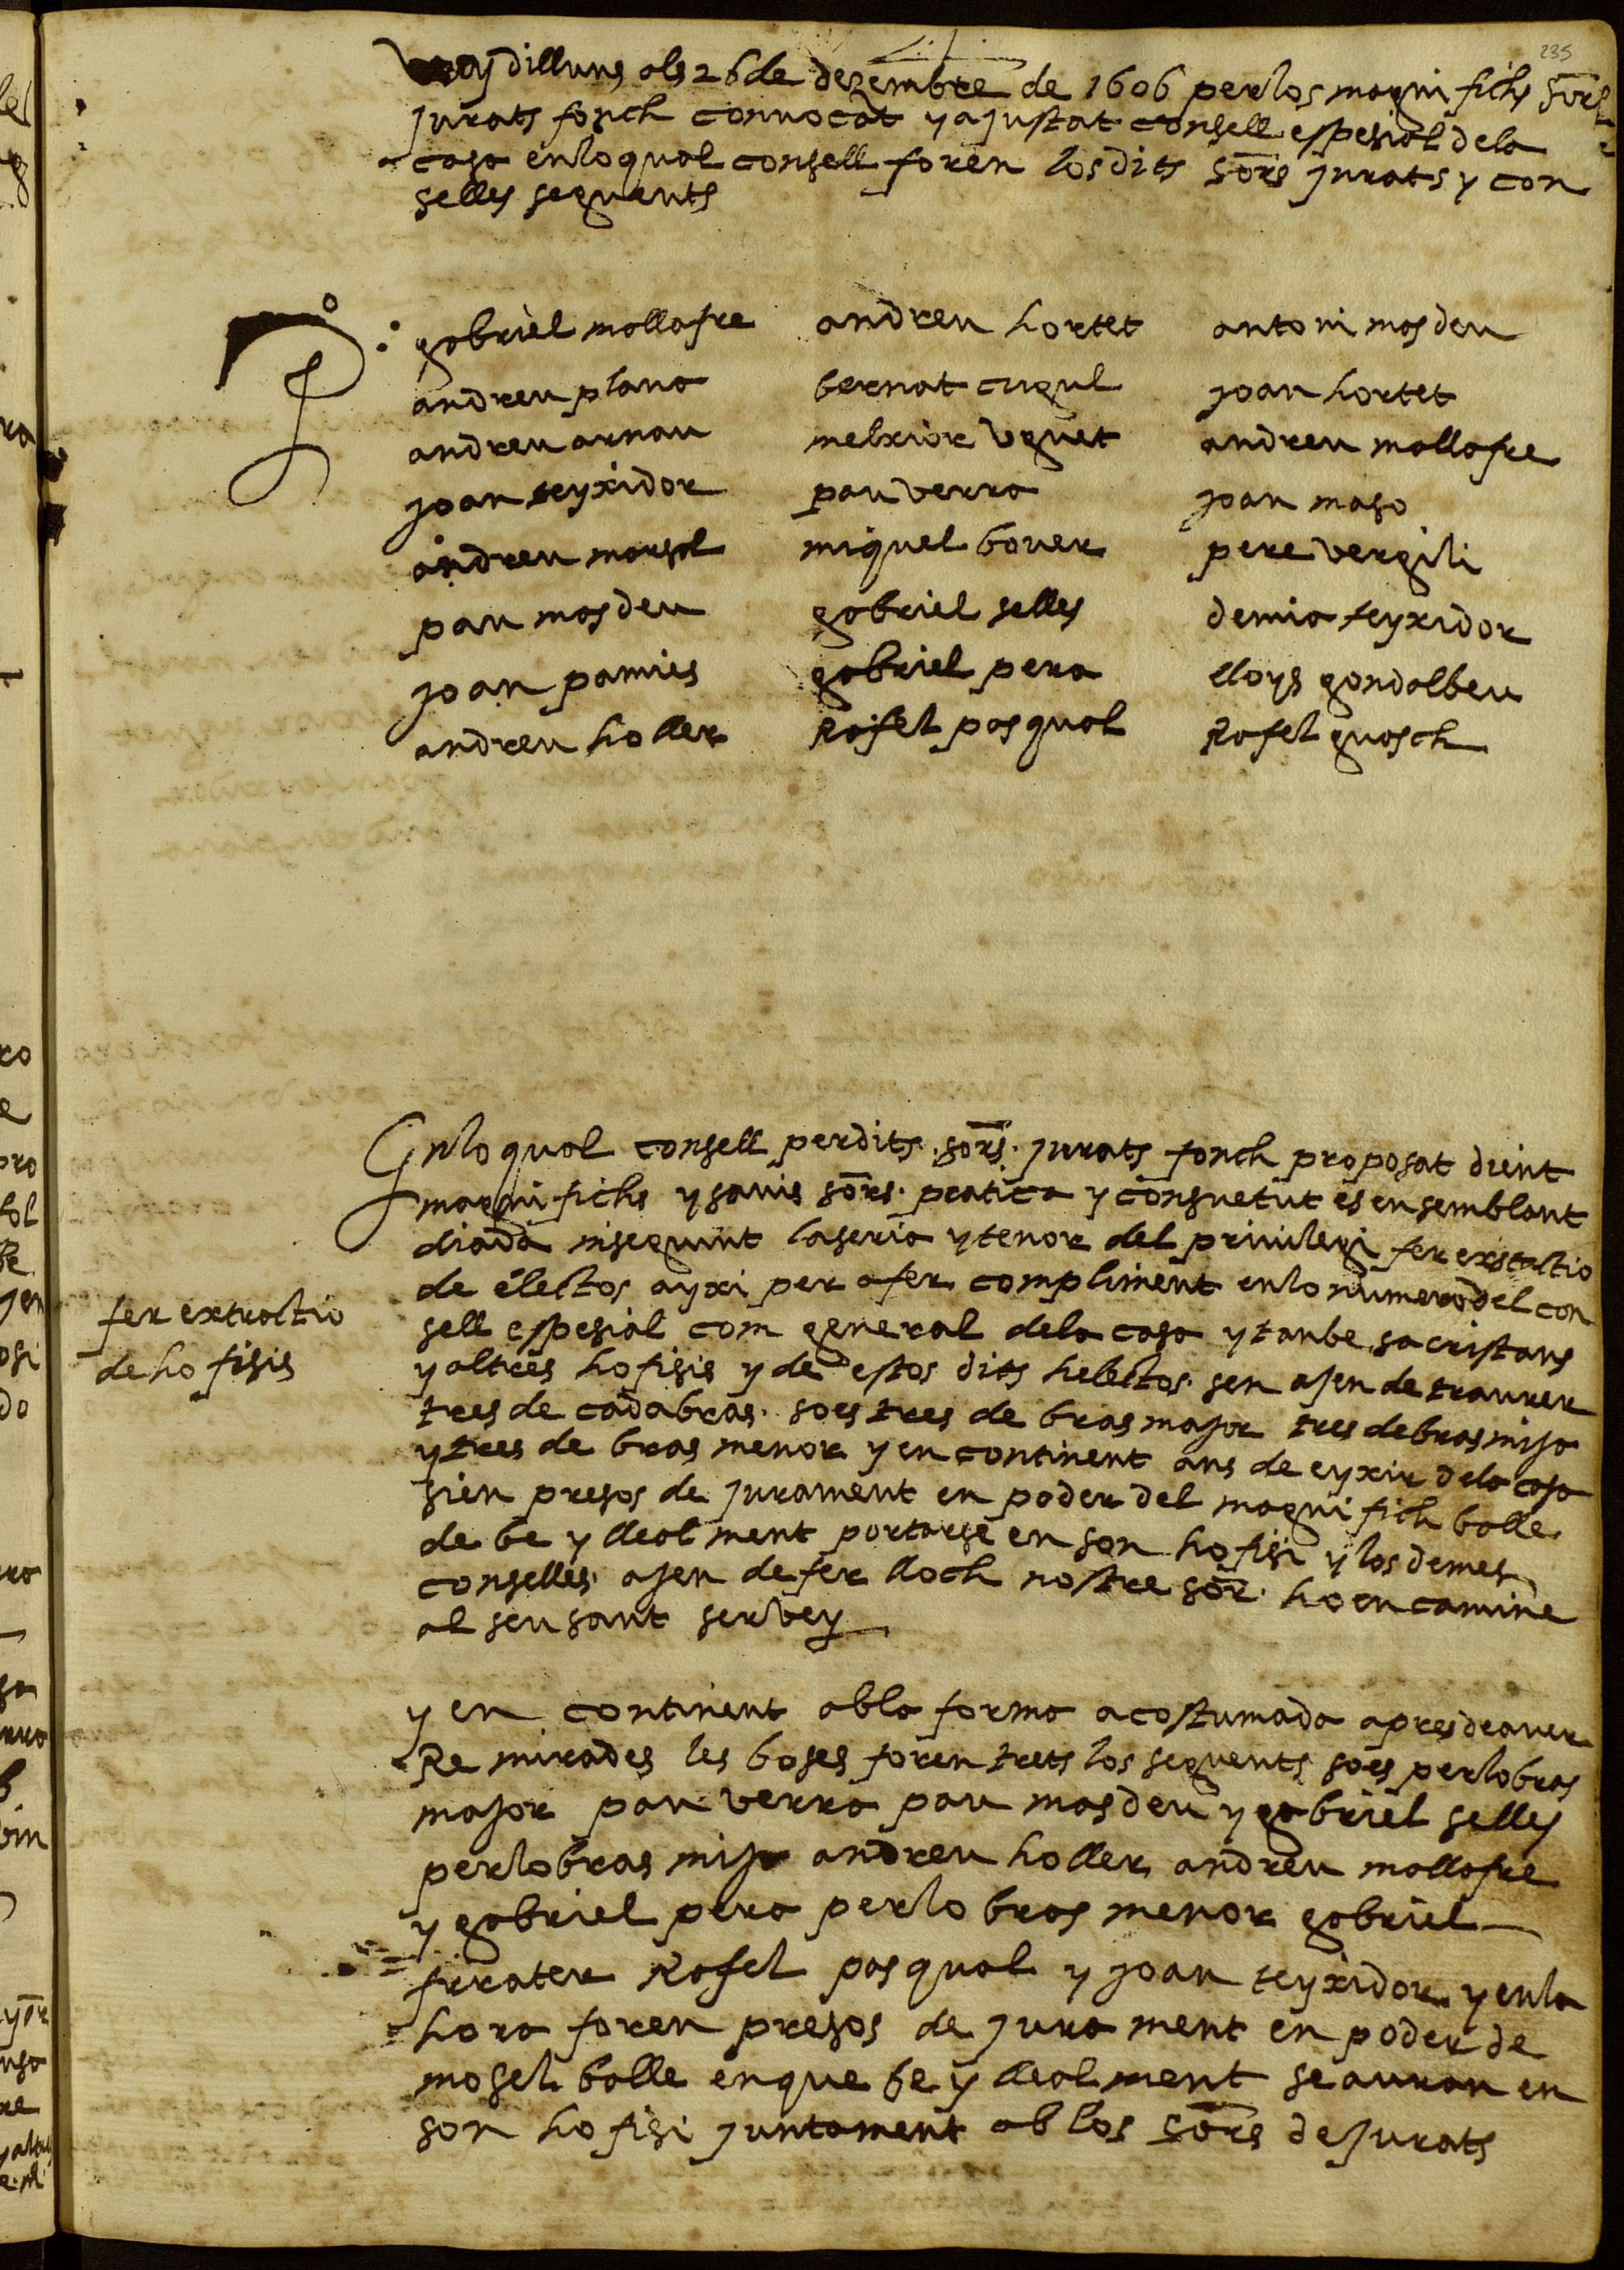 235
vuy dilluns als 26 de dezembre de 1606 per los magnifichs sors
jurats fonch convocat y ajustat consell espesial de la
casa en lo qual consell foren los dits sors jurats y con
selles seguents
gabriel mallafre andreu hortet antoni masdeu
andreu plana bernat cugul joan hortet
andreu arnau melxior uguet andreu mallafre
joan teyxidor pau verra joan maso
andreu marsal miquel bover pere vergili
pau masdeu gabriel selles demia teyxidor
joan pamies gabriel pera lloys gondolbeu
andreu holler Rafel pasqual Rafel guasch
En lo qual consell per dits sors jurats fonch proposat dient
magnifichs y savis sors pratica y consuetut es en semblant
diada inseguint la seria y tenor del privilegi fer exstactio
de electos ayxi per a fer compliment en lo numero del con
fer extractio
de hofisis
sell espesial com general de la casa y tanbe sacristans
y altres hofisis y de estos dits helectos sen ajen de traurer
tres de cada bras soes tres de bras major tres de bras mija
y tres de bras menor y en continent ans de eyxir de la casa
sien presos de jurament en poder del magnifich balle
de be y llealment portarse en son hofisi y los demes
conselles ajen de fer lloch nostre sor ho encamine
al seu sant servey
y en continent ab la forma acostumada apres de aver
Re mirades les boses foren trets los seguents soes per lo bras
major pau verra pau masdeu y gabriel selles
per lo bras mija andreu holler andreu mallafre
y gabriel pera per lo bras menor gabriel
frrater Rafel pasqual y joan teyxidor y en la
hora foren presos de jura ment en poder de
mosel balle en que be y lleal ment se auran en
son hofisi juntament ab los sors de jurats